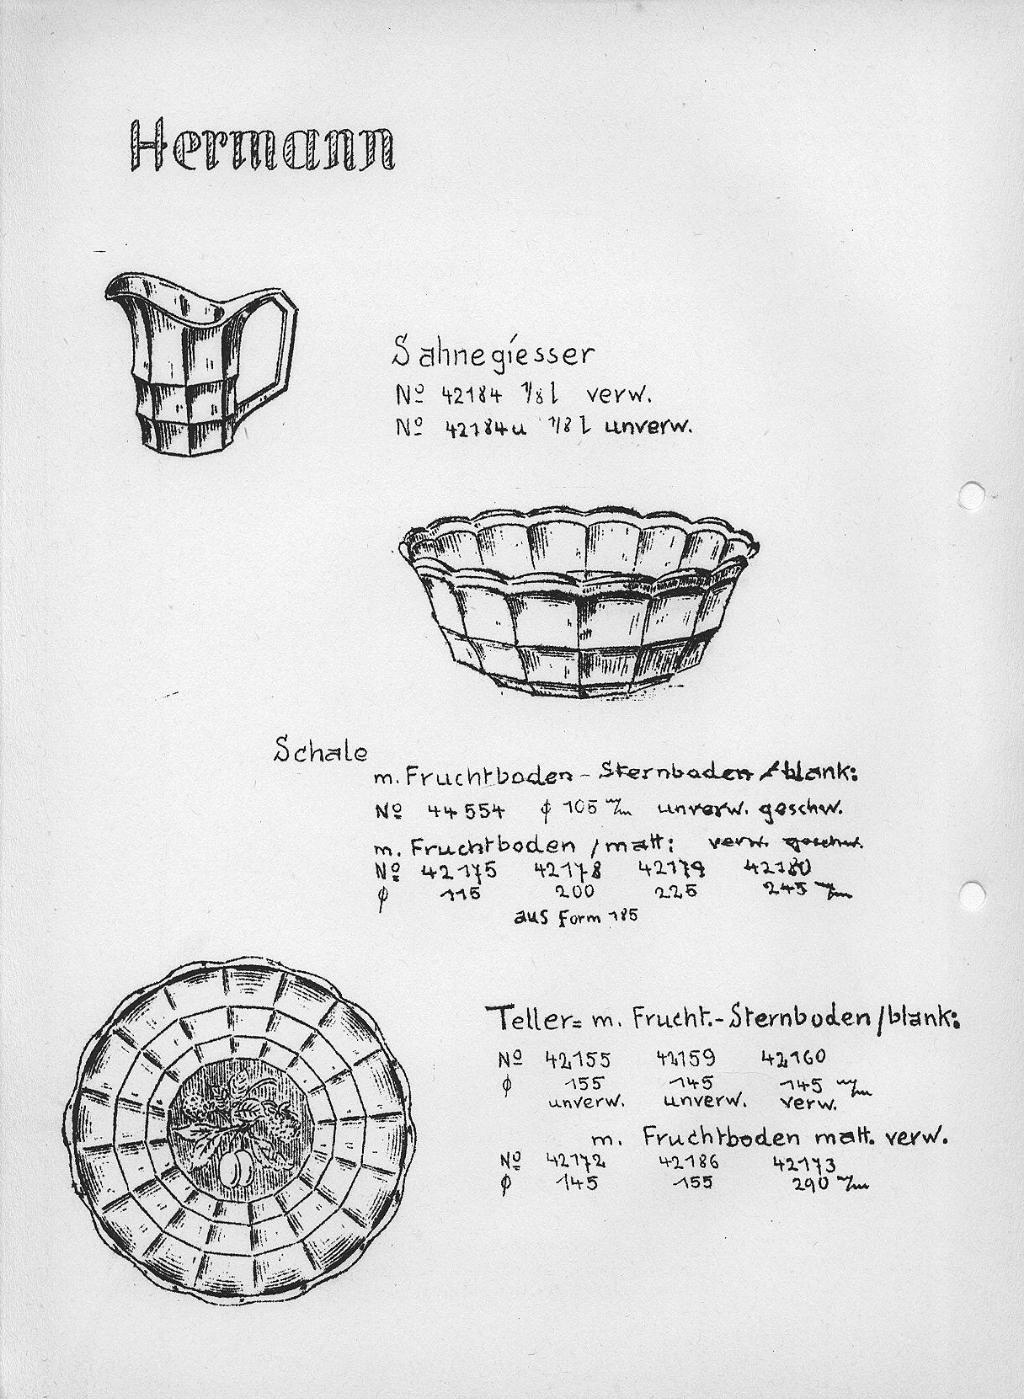 Hermann
Sahnegiesser
Nº 42184 1/8 l verw.
Nº 42184u 1/8 l unverw.
Schale
m. Fruchtboden - Sternboden /blank:
Nº 44554 ϕ 105 m/m unverw. geschw.
m. Fruchtboden /matt: verw. geschw.
Nº 42175 42178 42179 42180
ϕ 115 200 225 245 m/m
aus Form 185
Teller= m. Frucht.-Sternboden/blank:
Nº 42155 42159 42160
ϕ 155 145 145 m/m
unverw. unverw. verw.
m. Fruchtboden matt. verw.
Nº 42172 42186 42173
ϕ 145 155 290 m/m